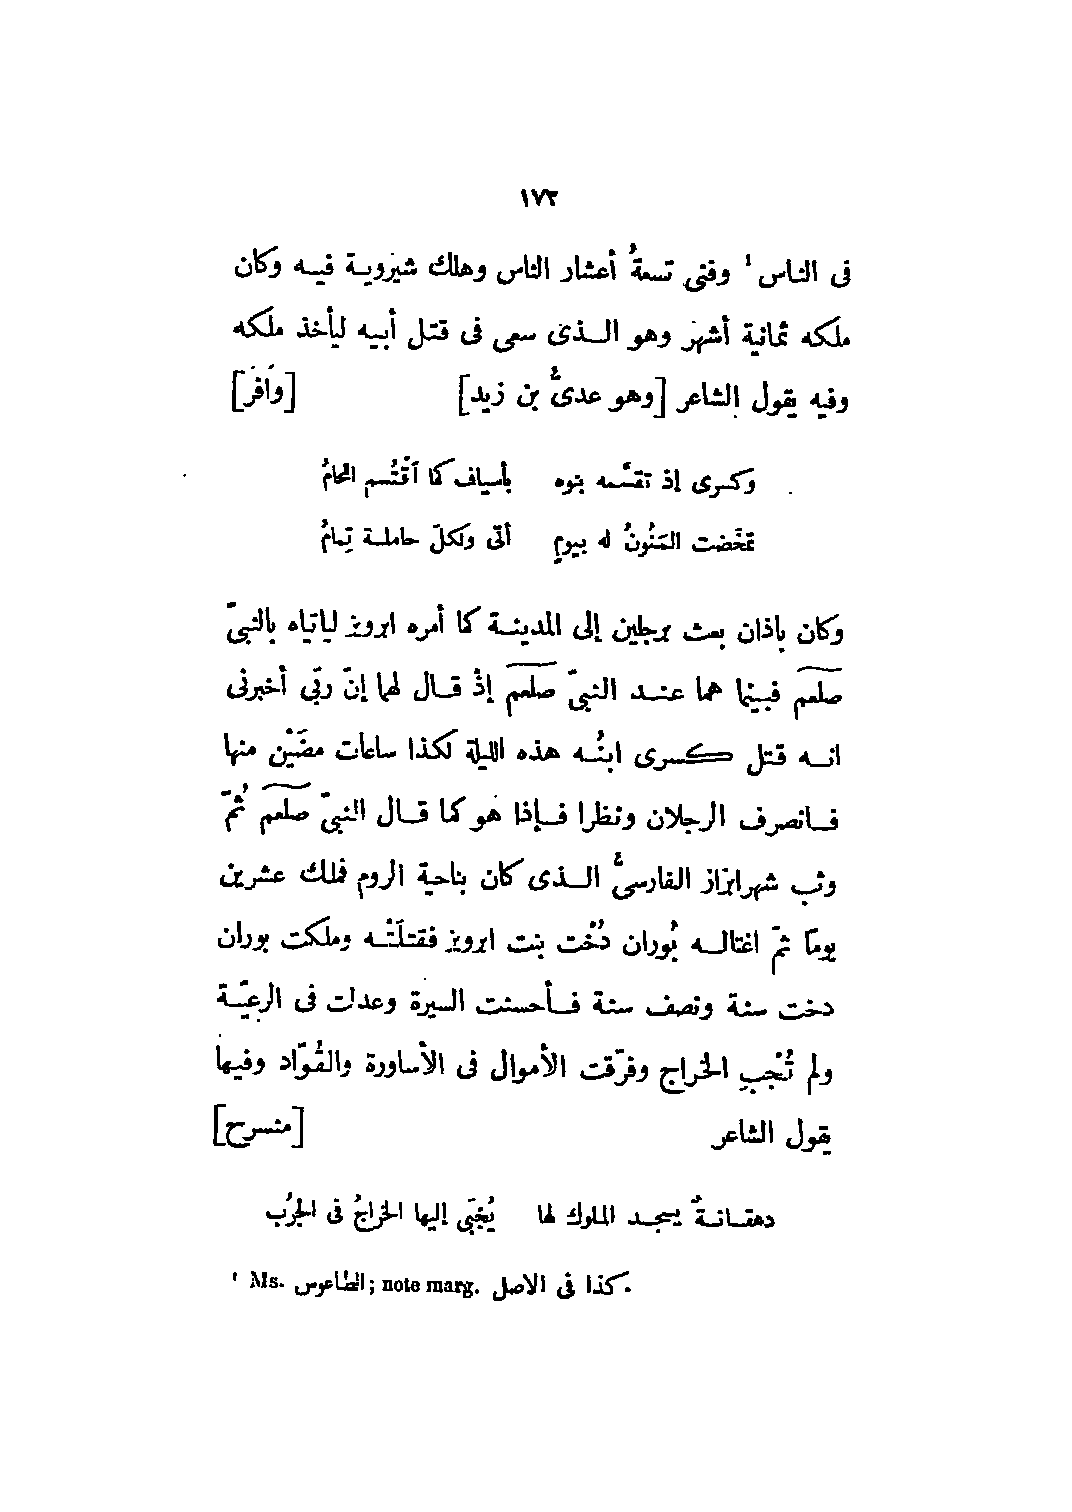 ١٧٢
فى الناس ١ وفنى تسعةُ أعشار الناس وهلك شيروية فيه وكان
ملكه ثمانية أشهر وهو الذى سعى فى قتل أبيه ليأخذ ملكه
وفيه يقول الشاعر [وهو عدىُّ بن زيد] [وَافَر]
وكسرى إذ تقسَّمه بنوه بأسياف كما اَقْتُسم اللحامُ
تمخّضت المَنُونُ له بيومٍ أتّى ولكلّ حاملة تِمامُ
وكان باذان بعث برجلين إلى المدينة كما أمره ابرويز لياتياه بالنبىّ
صلعم فبينما هما عند النبىّ صلعم إذْ قال لهما إنّ ربّى أخبرنى
انه قتل كسرى ابنُه هذه الليلة لكذا ساعات مضَيْن منها
فانصرف الرجلان ونظرا فإذا هو كما قال النبىّ صلعم ثُمّ
وثب شهرابزاز الفارسىُّ الذى كان بناحية الروم فملك عشرين
يومًا ثمّ اغتاله بُوران دُخْت بنت ابرويز فقتلَتْه وملكت بوران
دخت سنة ونصف سنة فأحسنت السيرة وعدلت فى الرعيّة
ولم تُجْبِ الخراج وفرّقت الأموال فى الأساورة والقُوّاد وفيها
يقول الشاعر [منسرح]
دهقانةٌ يسجد الملوك لها يُجْبَى إليها الخراجُ فى الجُرُب
١ Ms. الطاعوس; note marg. كذا فى الاصل.